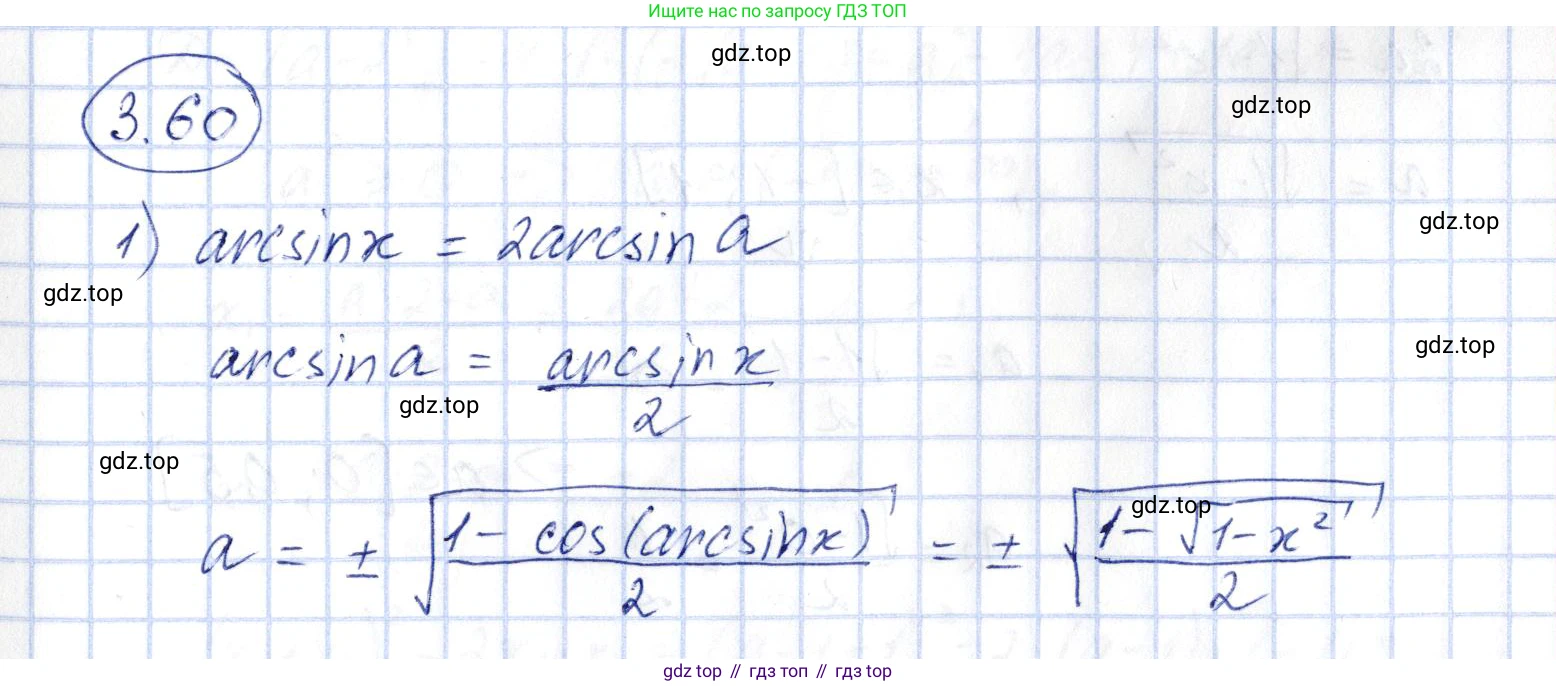 Ищите нас по запросу ГДЗ ТОП
gdz.top
3.60
gdz.top
1) arcsinx = 2arcsin a
gdz.top
gdz.top
arcsin a = arcsin x / 2
gdz.top
gdz.top
gdz.top
a = ± √((1 - cos(arcsinx)) / 2) = ± √((1 - √(1 - x²)) / 2)
gdz.top
gdz.top // гдз топ // гдз top